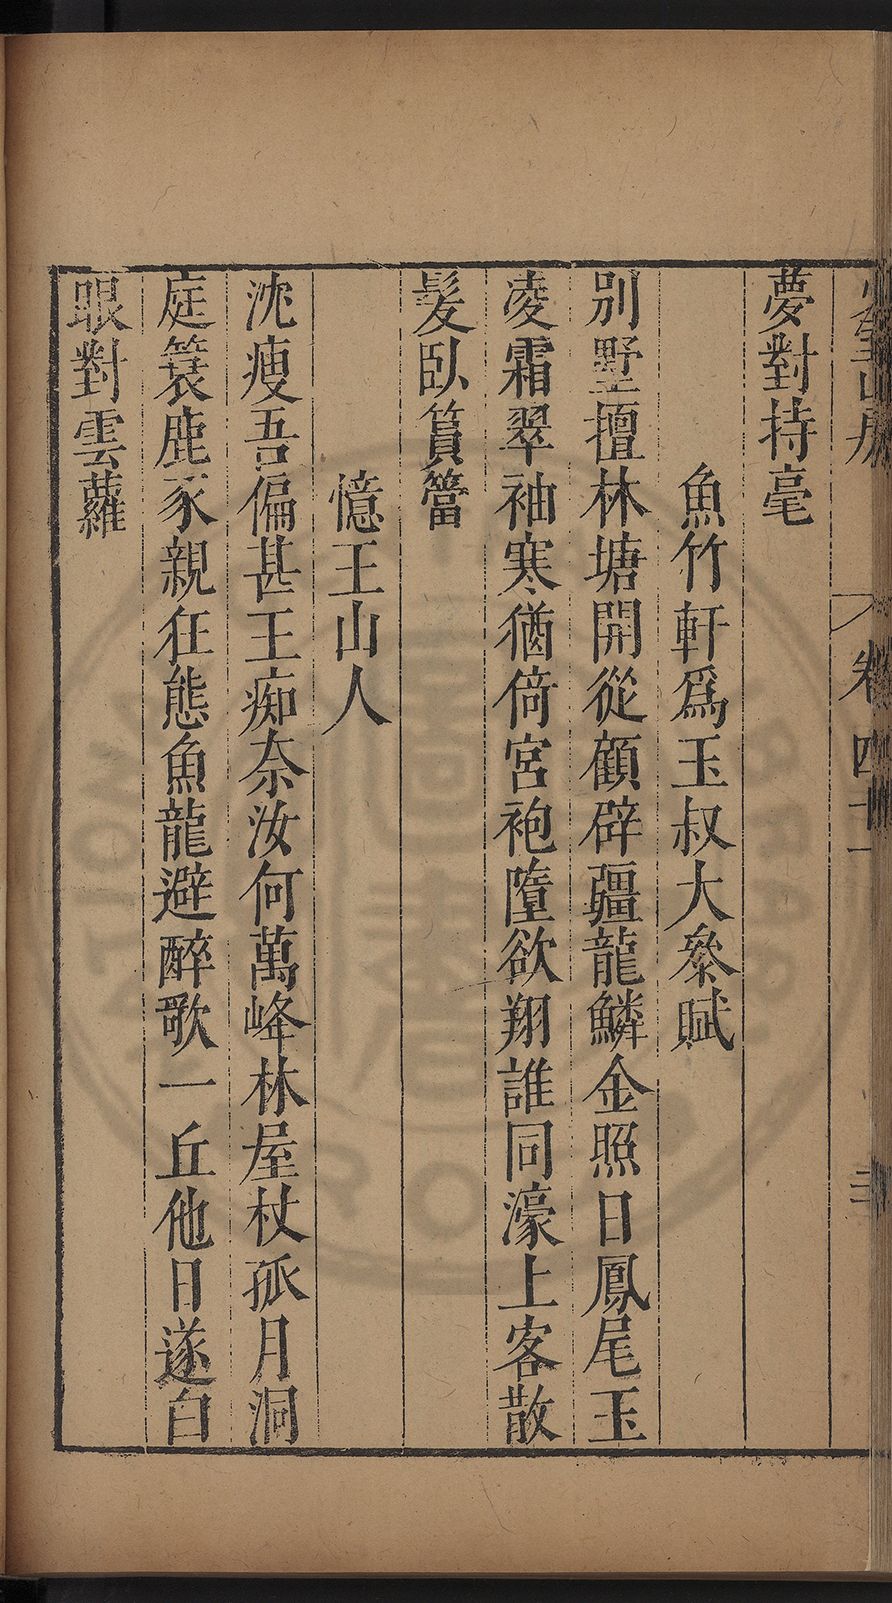 卷四十一
三
夢對持毫
魚竹軒爲玉叔大叅賦
別墅擅林塘開從顧辟疆龍鱗金照日鳳尾玉
凌霜翠袖寒猶倚宮袍墮欲翔誰同濠上客散
髮臥篔簹
憶王山人
沈瘦吾偏甚王痴奈汝何萬峰林屋杖孤月洞
庭簑鹿豕親狂態魚龍避醉歌一丘他日遂白
眼對雲蘿